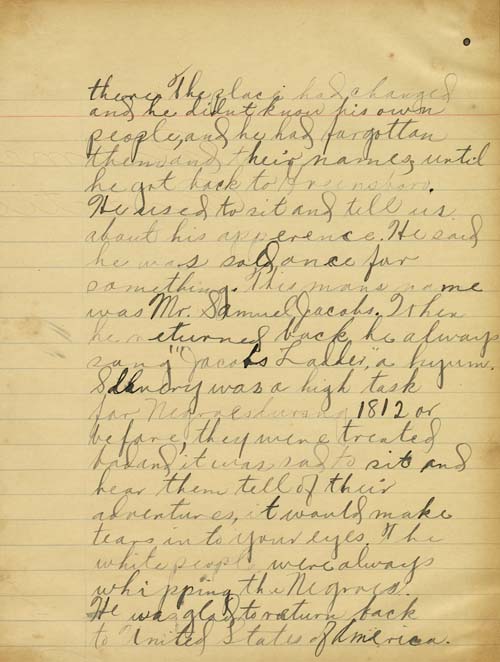 there. The place had changed
and he didnt know his own
people, and he had forgottan
them and their names, until
he got back to Greensboro.
He used to sit and tell us
about his apperence. He said
he was sold once for
something. This mans name
was Mr. Samuel Jacobs. When
he returned back he always
sang "Jacobs Ladder," a hyum.
Slavdry was a high task
for Negroes during 1812 or
before, they were treated
bad and it was sad to sit and
hear them tell of their
adventures, it would make
tears in to your eyes. The
white people were always
whipping the Negroes.
He was glad to return back
to United States of America.